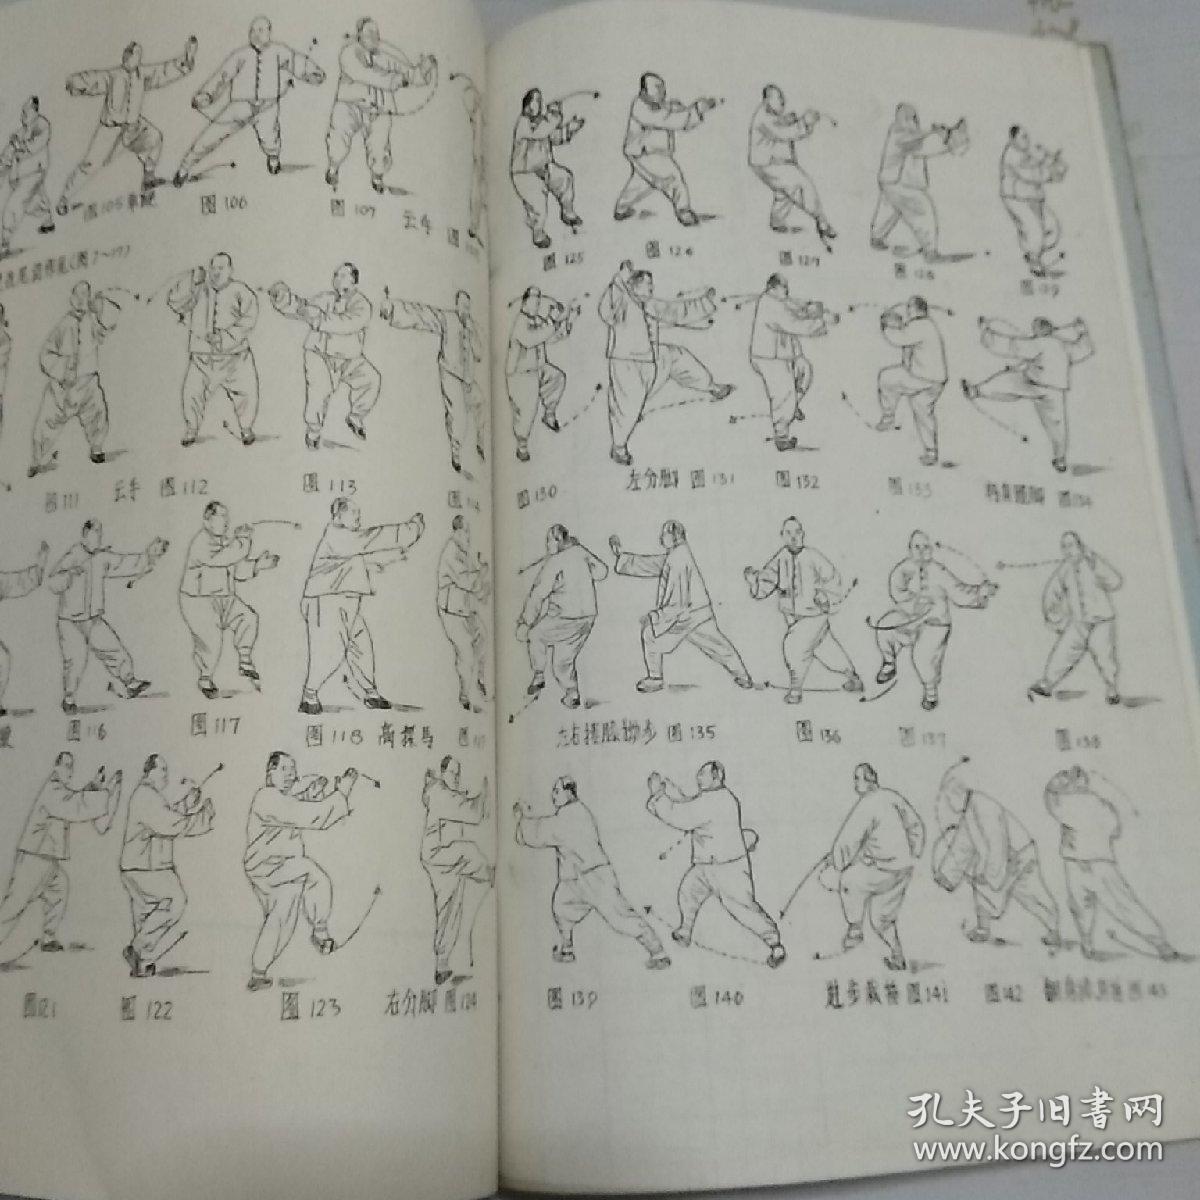 图105单鞭
图106
图109
云手
图
揽雀尾同前(图7~17)
图111
云手 图112
图113
图114
图130
左分脚 图131
图132
图133
转身蹬脚 图134
图125
图126
图127
图128
图129
图116
图117
图118 高探马
图11
左右搂膝拗步 图135
图136
图137
图138
图121
图122
图123
右分脚 图124
图139
图140
进步栽捶 图141
图142
图143
孔夫子旧書网
www.kongfz.com